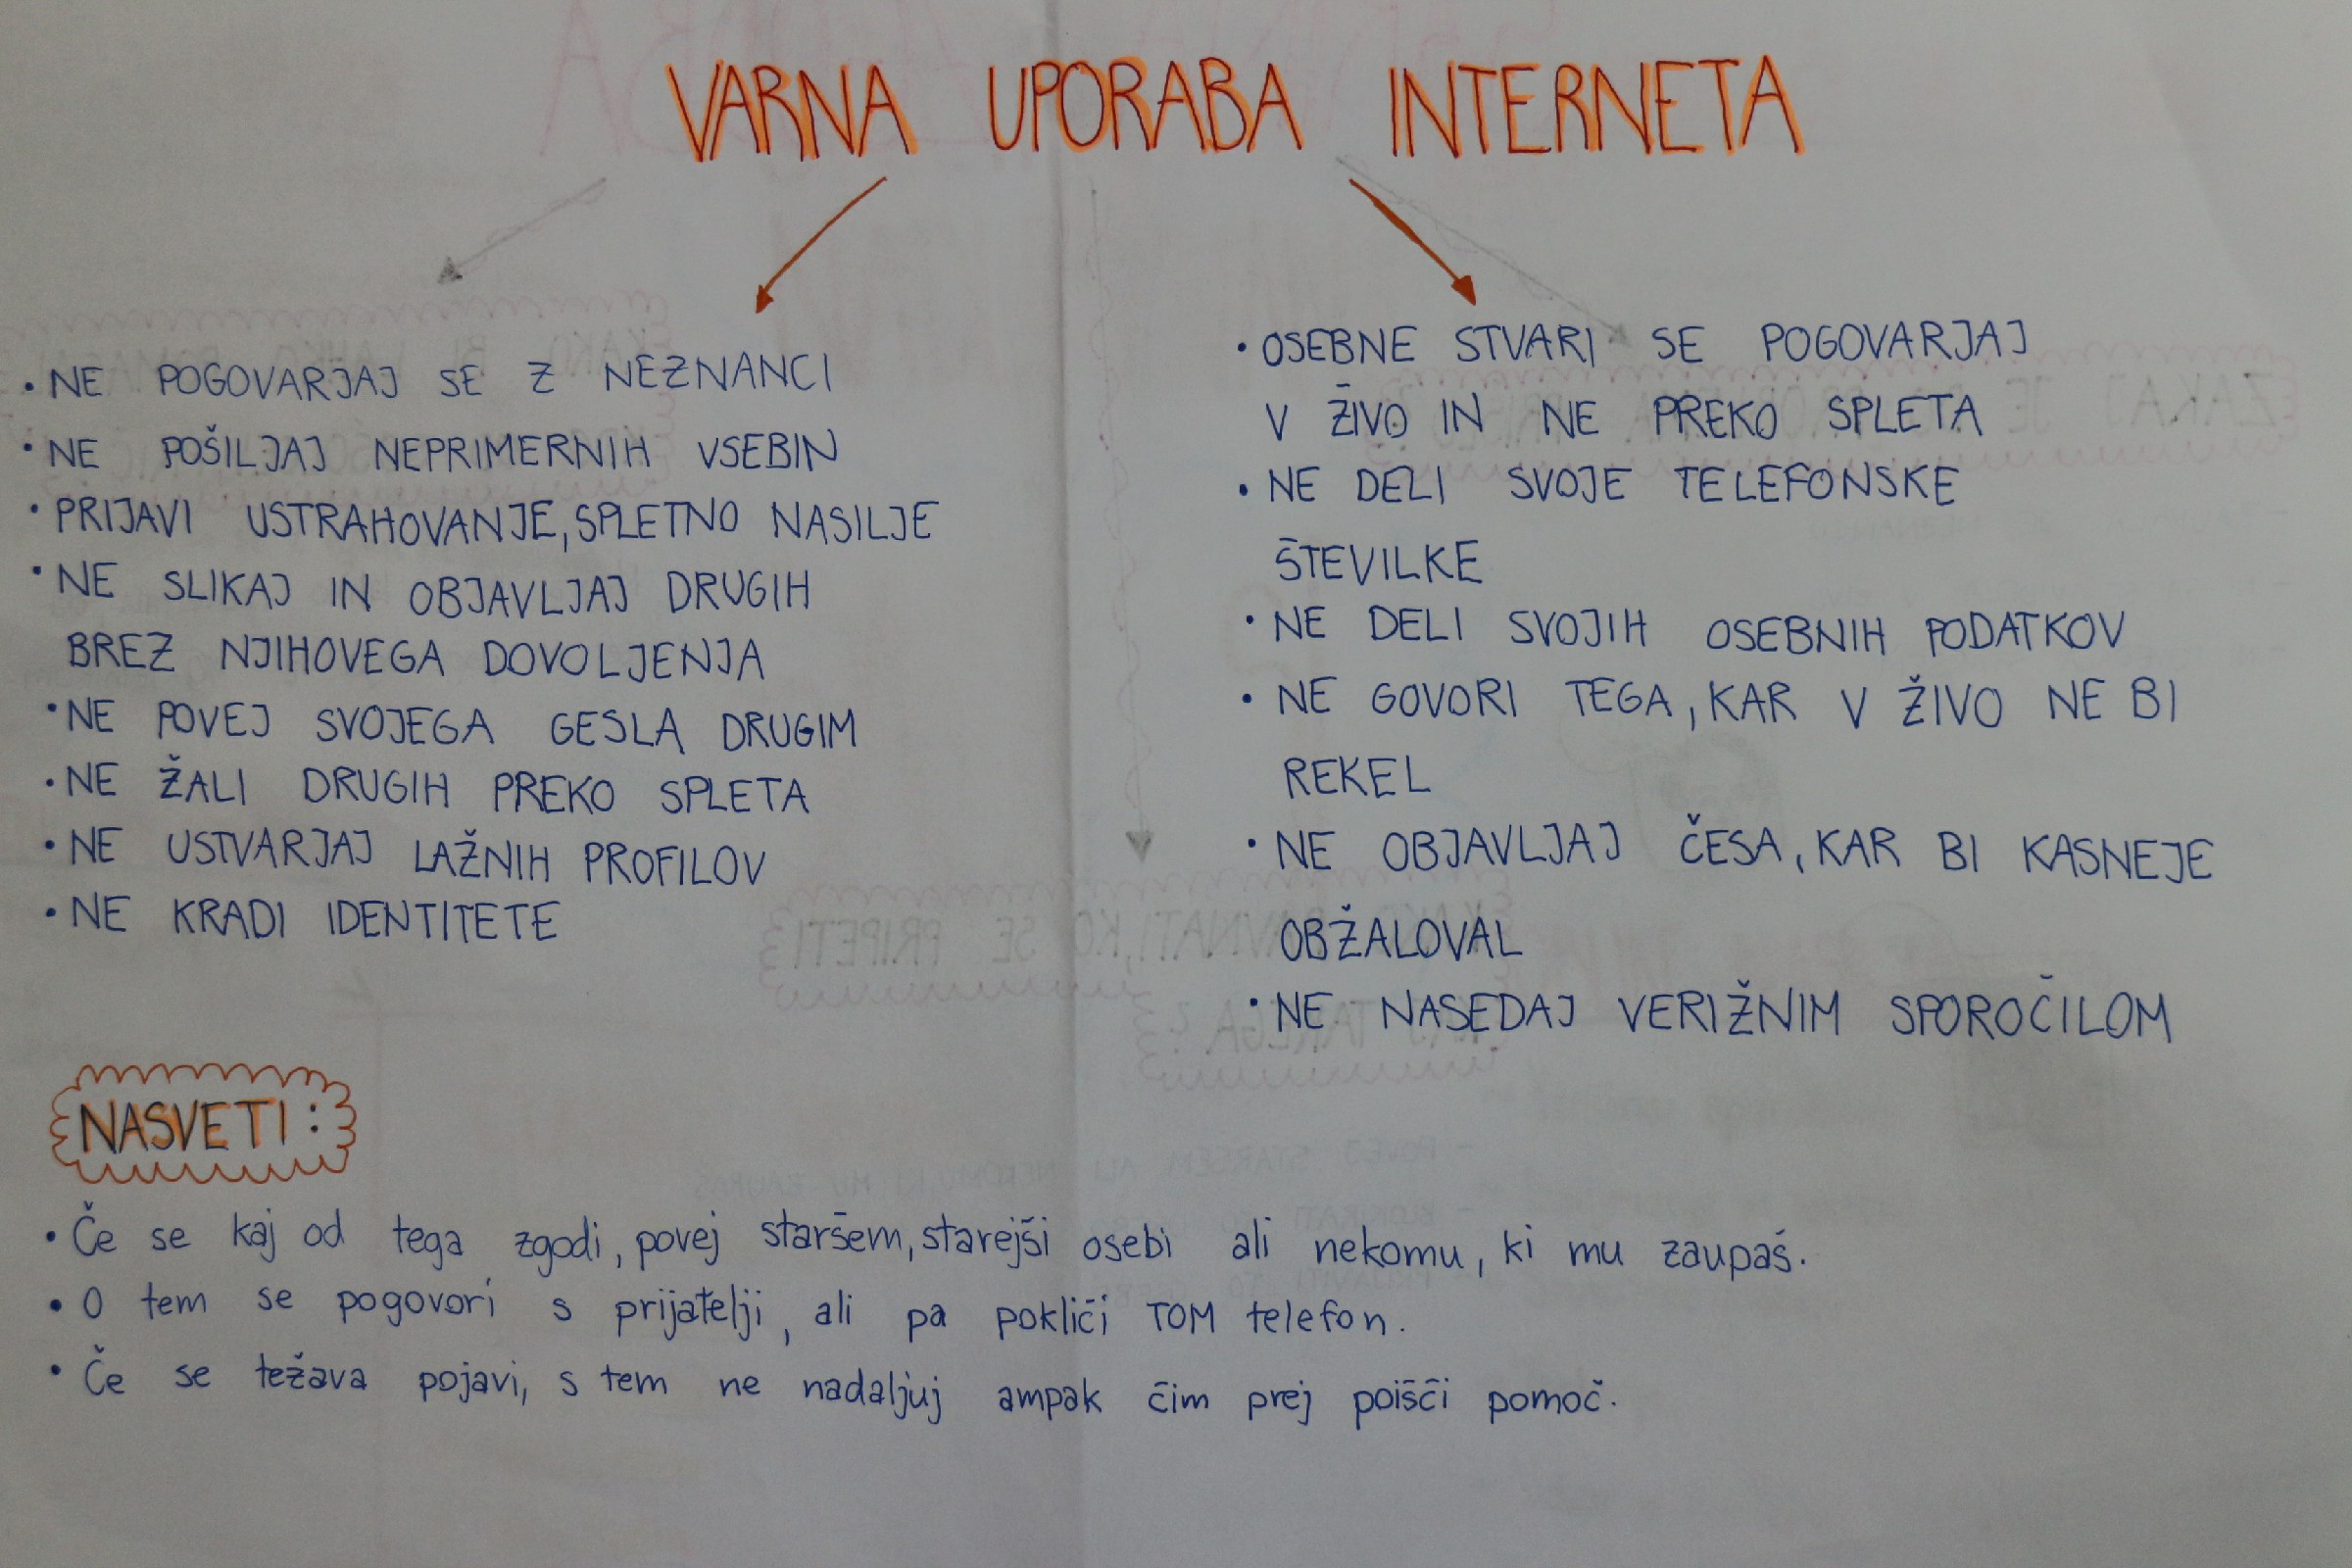 VARNA UPORABA INTERNETA
• NE POGOVARJAJ SE Z NEZNANCI
• NE POŠILJAJ NEPRIMERNIH VSEBIN
• PRIJAVI USTRAHOVANJE, SPLETNO NASILJE
• NE SLIKAJ IN OBJAVLJAJ DRUGIH
BREZ NJIHOVEGA DOVOLJENJA
• NE POVEJ SVOJEGA GESLA DRUGIM
• NE ŽALI DRUGIH PREKO SPLETA
• NE USTVARJAJ LAŽNIH PROFILOV
• NE KRADI IDENTITETE
• OSEBNE STVARI SE POGOVARJAJ
V ŽIVO IN NE PREKO SPLETA
• NE DELI SVOJE TELEFONSKE
ŠTEVILKE
• NE DELI SVOJIH OSEBNIH PODATKOV
• NE GOVORI TEGA, KAR V ŽIVO NE BI
REKEL
• NE OBJAVLJAJ ČESA, KAR BI KASNEJE
OBŽALOVAL
• NE NASEDAJ VERIŽNIM SPOROČILOM
NASVETI:
• Če se kaj od tega zgodi, povej staršem, starejši osebi ali nekomu, ki mu zaupaš.
• O tem se pogovori s prijatelji, ali pa pokliči TOM telefon.
• Če se težava pojavi, s tem ne nadaljuj ampak čim prej poišči pomoč.